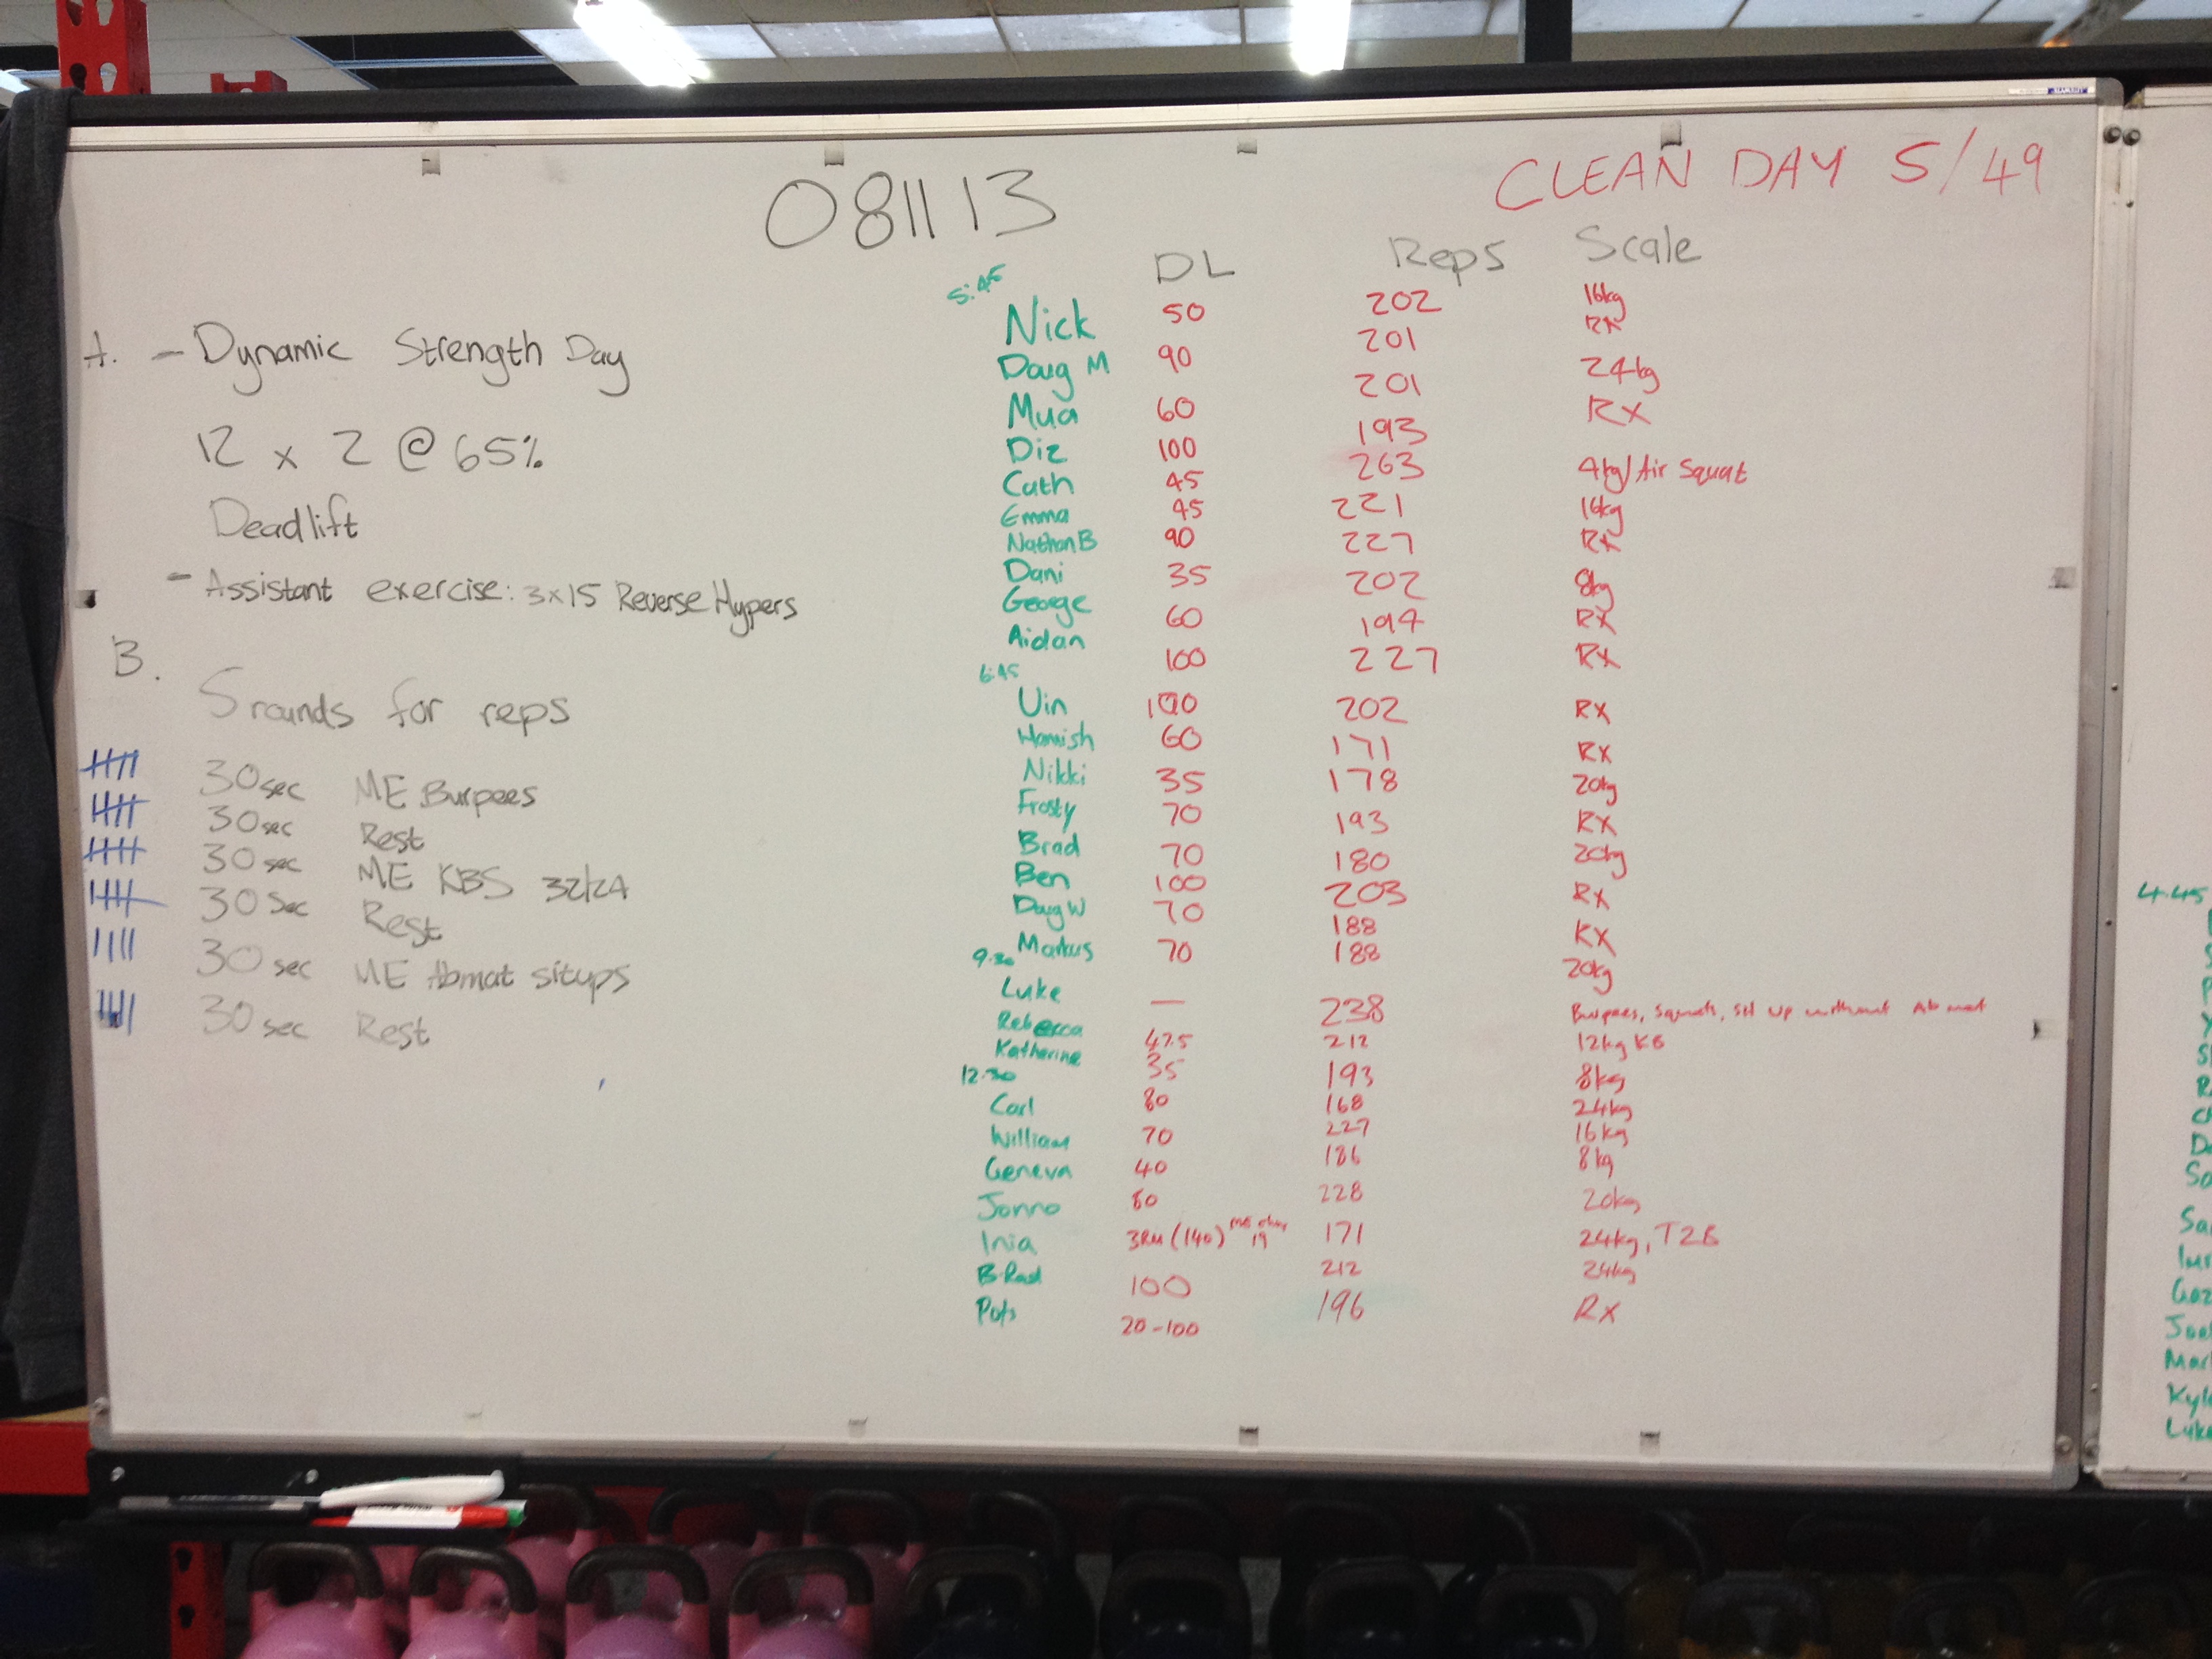 CLEAN DAY 5/49
081113
DL Reps Scale
A. - Dynamic Strength Day
12 x 2 @ 65%
Deadlift
- Assistant exercise: 3x15 Reverse Hypers
B.
5 rounds for reps
30sec ME Burpees
30sec Rest
30sec ME KBS 32/24
30sec Rest
30sec ME Abmat situps
30sec Rest
5:45
Nick 50 202 16kg
Doug M 90 201 Rx
Mua 60 201 24kg
Diz 100 193 Rx
Cath 45 263 4kg/Air Squat
Emma 45 221 16kg
Nathan B 90 227 Rx
Dani 35 202 8kg
George 60 194 Rx
Aidan 100 227 Rx
6:45
Uin 100 202 Rx
Hamish 60 171 Rx
Nikki 35 178 20kg
Frosty 70 193 Rx
Brad 70 180 20kg
Ben 100 203 Rx
Doug W 70 188 Rx
Markus 70 188 20kg
9.30
Luke — 238 Burpees, Squats, Sit up without Ab mat
Rebecca 42.5 212 12kg KB
Katherine 35 193 8kg
12.30
Carl 80 168 24kg
William 70 227 16kg
Geneva 40 186 8kg
Jonno 80 228 20kg
Inia 3RM (140) 19 171 24kg, T2B
B-Rad 100 212 24kg
Pots 20-100 196 Rx
4.45
Kyle
Luke